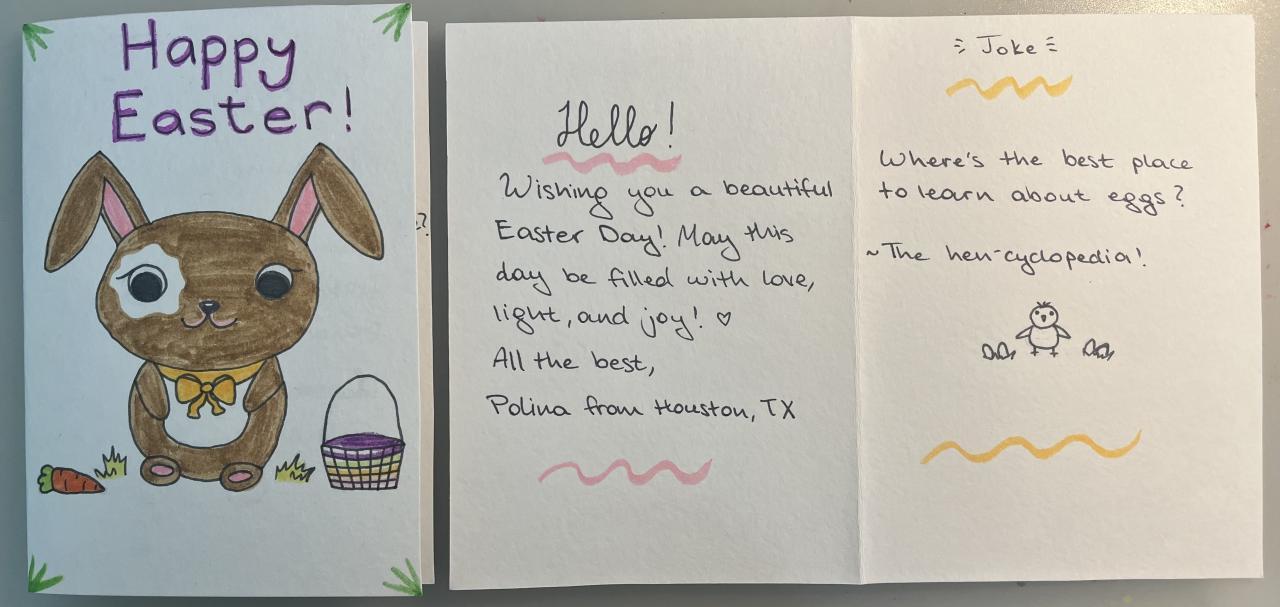 Happy
Easter!
?
Hello!
Wishing you a beautiful
Easter Day! May this
day be filled with love,
light, and joy! ♡
All the best,
Polina from Houston, TX
Joke
Where's the best place
to learn about eggs?
~The hen-cyclopedia!